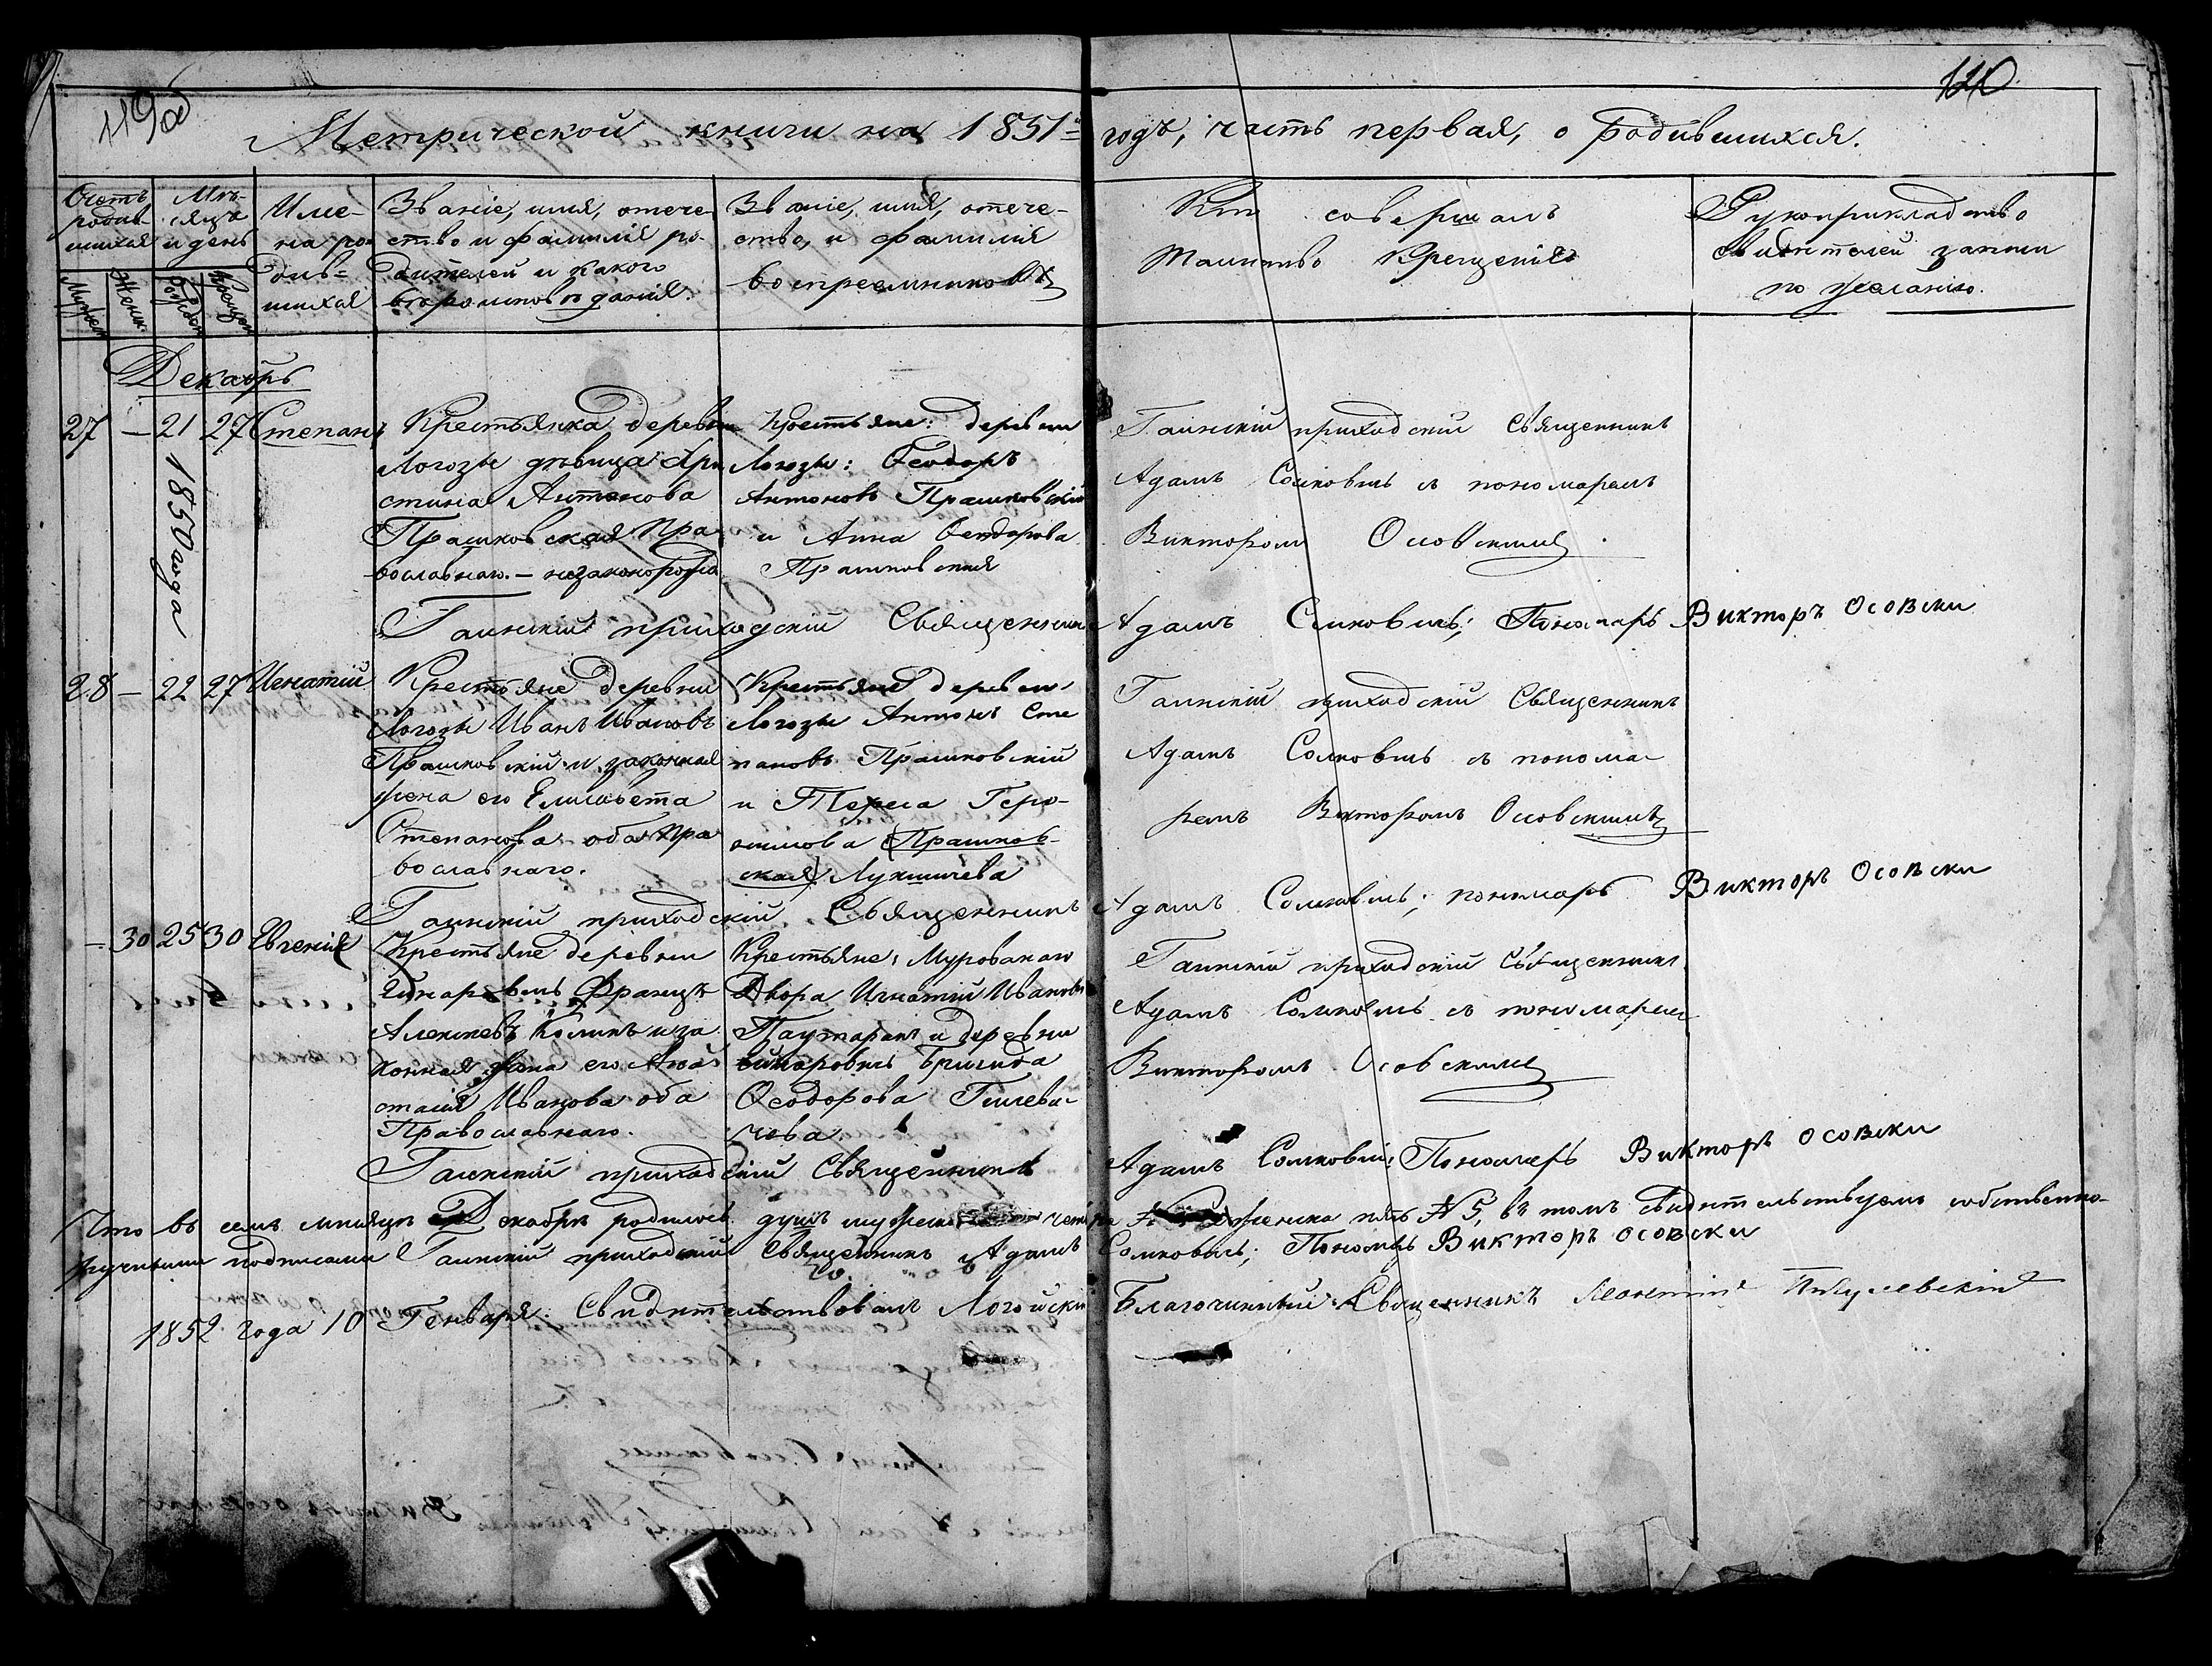 119об
120.
Метрической книги на 1851й годъ, часть первая, о родившихся.
Счетъ родив-шихся
Мужеск.
Женск.
Мѣ-сяцъ и день
Рожден.
Крещен.
Име-на ро-див-шихся
Званіе, имя, отече-
ство и фамилія ро-
дителей и какого
вѣроисповѣданія.
Званіе, имя, отече-
ство, и фамилія
воспреемниковъ
Кто совершалъ
таинство крещенія
Рукоприкладство
свидѣтелей записи
по желанію.
Декабрь
27 — 21 27 Степанъ
1850 года
Крестьянка деревни
Логозы дѣвица Хри
стина Антонова
Прашковская пра
вославнаго. — незаконорожд.
Крестьяне: деревни
Логозы: Ѳеодоръ
Антоновъ Прашковскій
и Анна Ѳеодорова
Прашковская
Гаинскій приходскій Священникъ
Адамъ Сошковичъ съ пономаремъ
Викторомъ Осовскимъ.
Гаинскій приходскій Священникъ Адамъ Сошковичъ; Пономарь Викторъ Осовски
28 — 22 27 Игнатій
Крестьяне деревни
Логозы Иванъ Ивановъ
Прашковскій и законная
жена его Елисавета
Степанова оба пра
вославнаго.
Крестьяне деревни
Логозы Антонъ Сте
пановъ Прашковскій
и Тереса Геро-
нимова (Прашков-
ская) Лукшичева
Гаинскій приходскій Священникъ
Адамъ Сошковичъ съ понома-
ремъ Викторомъ Осовскимъ
Гаинскій приходскій Священникъ Адамъ Сошковичъ; пономарь Викторъ Осовски
— 30 25 30 Евгенія
Крестьяне деревни
Францъ
Алексѣевъ и за
конная жена его Ана
стасія Иванова оба
Православнаго.
Крестьяне, Мурованаго
Двора Игнатій Ивановъ
и деревни
Бригида
Ѳеодорова Гилеви-
чева
Гаинскій приходскій Священникъ
Адамъ Сошковичъ съ пономаремъ
Викторомъ Осовскимъ
Гаинскій приходскій Священникъ Адамъ Сошковичъ; Пономарь Викторъ Осовски
Что въ семъ мѣсяцѣ Декабрѣ родилось душъ мужеска женска пять № 5, въ томъ свидѣтельствуемъ собственно-
ручными подписами Гаинскій приходскій Священникъ Адамъ Сошковичъ; Пономарь Викторъ Осовски
1852 года 10 Генваря. Свидѣтельствовалъ Логойскій Благочинный Священникъ